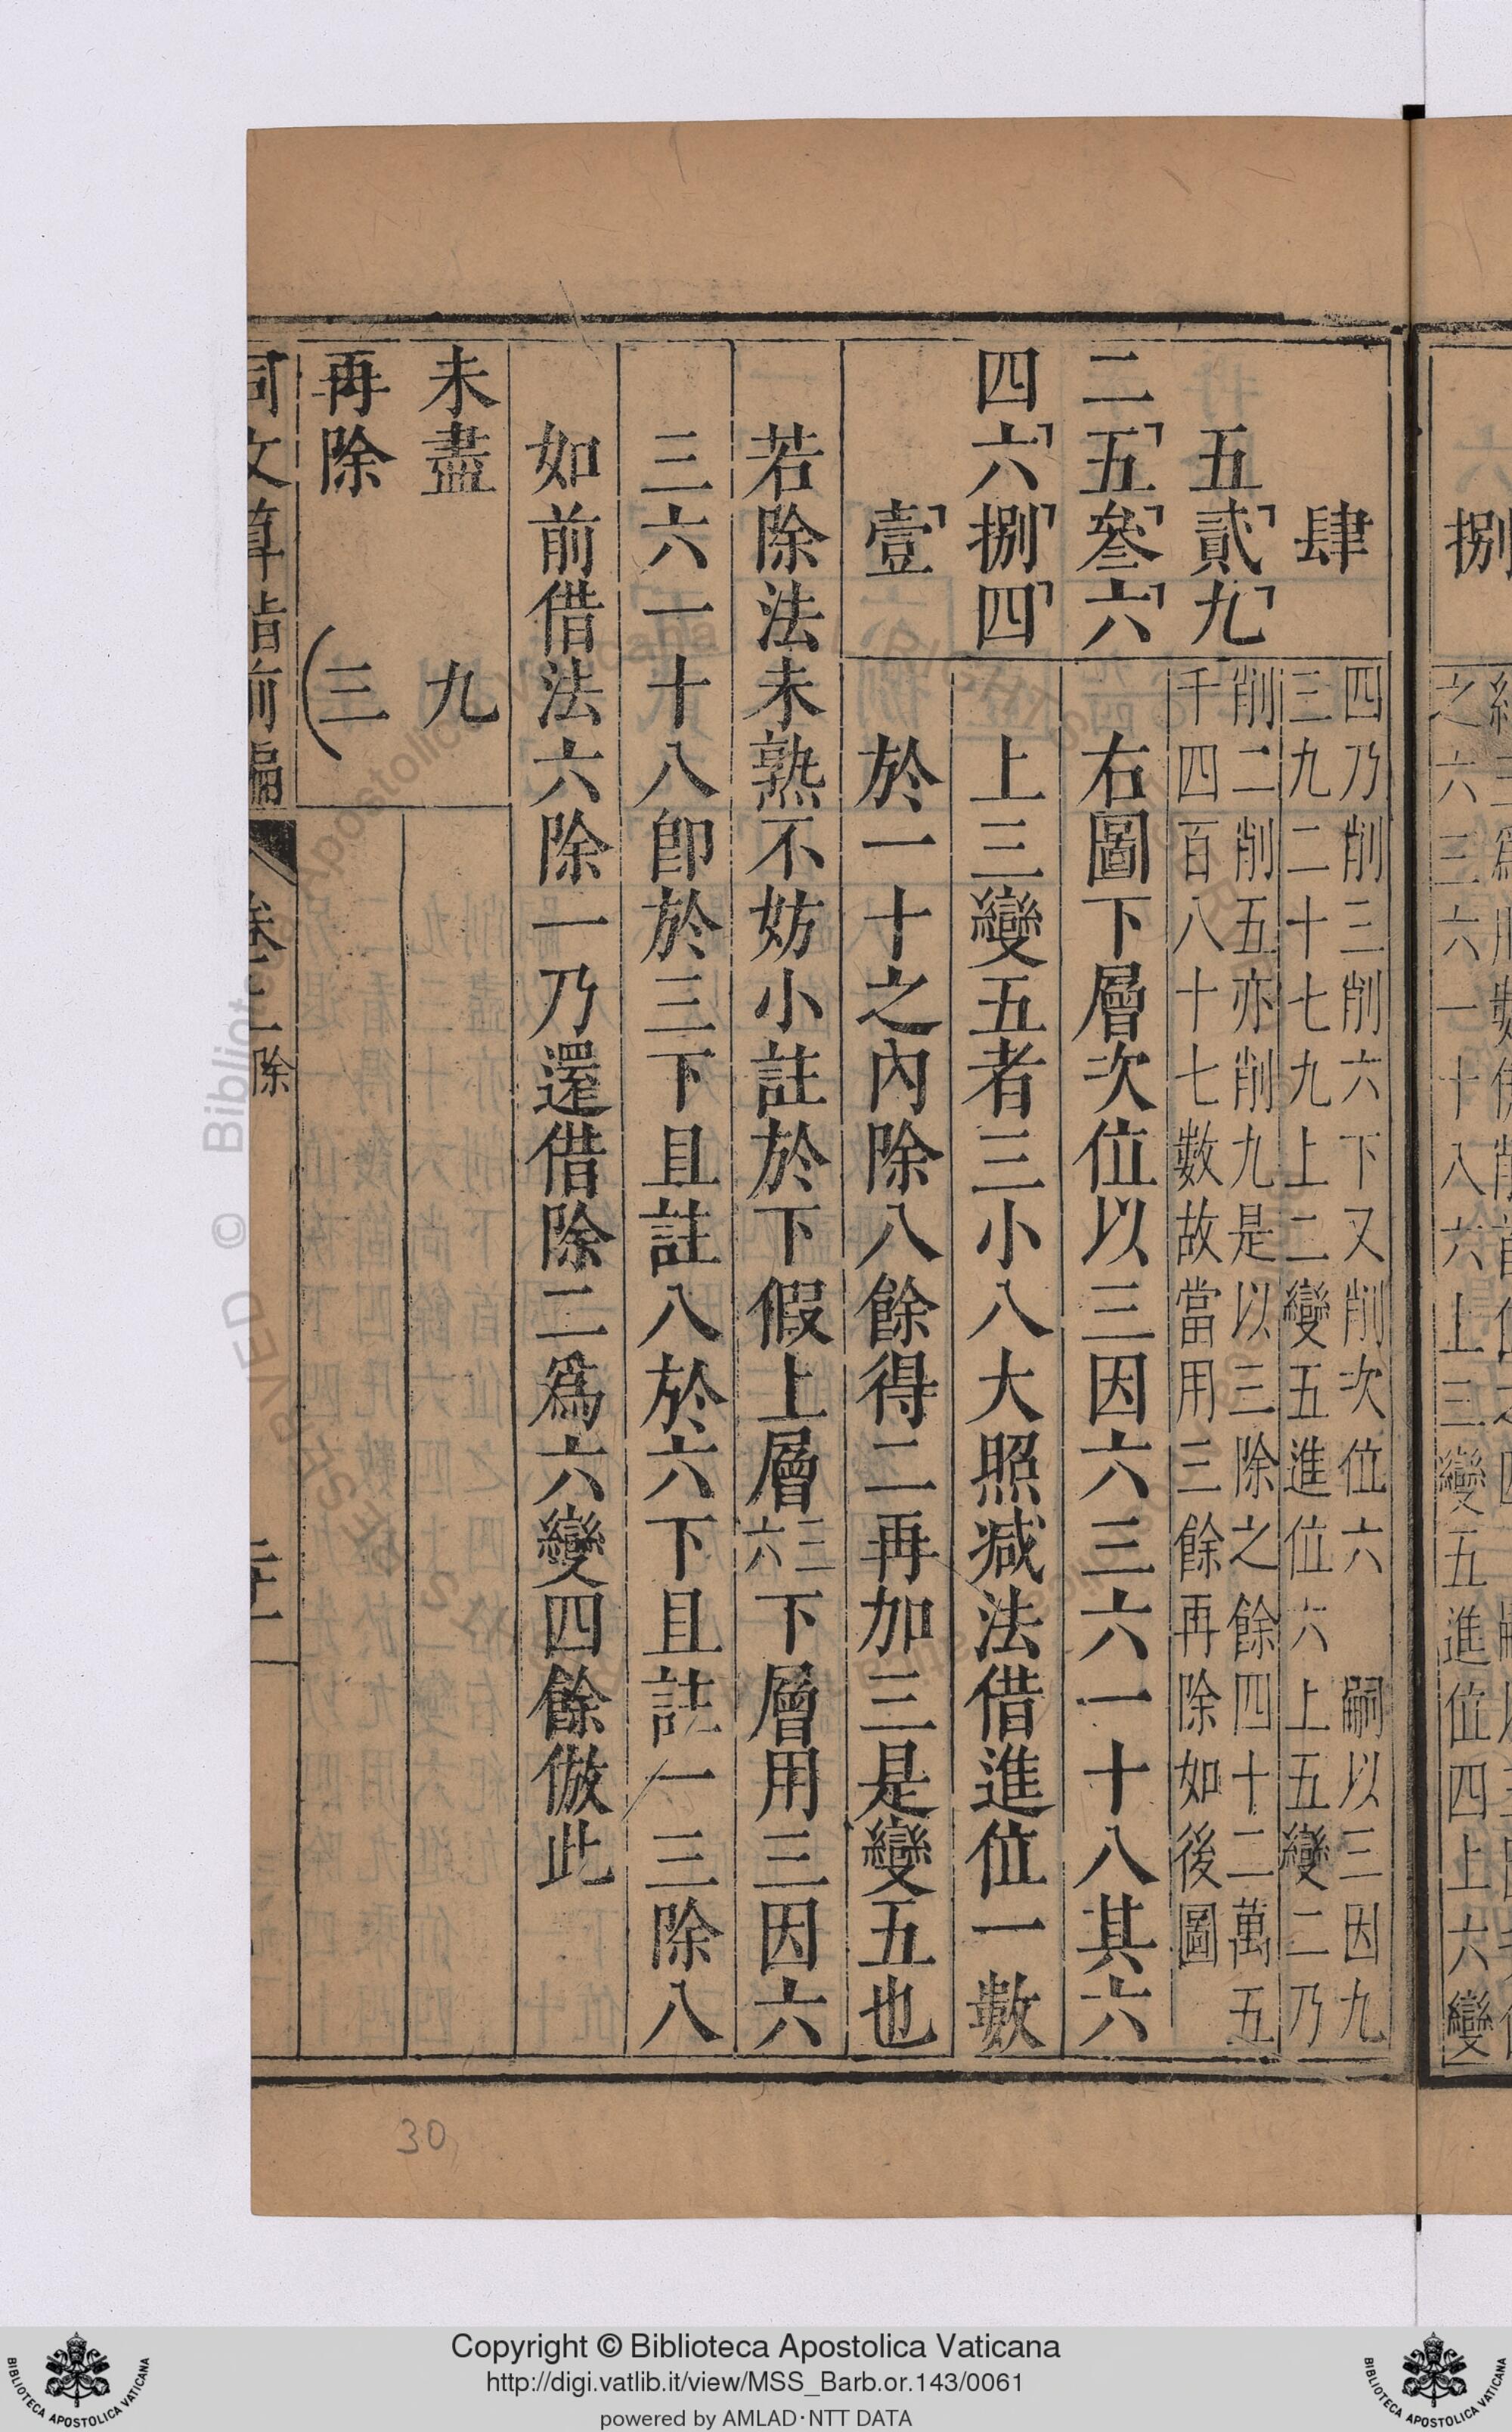 捌
之六三六一十八六上三變五進位四上六變
肆
五貳九
二五叄六
四六捌四
壹
四乃削三削六下又削次位六 嗣以三因九
三九二十七九上二變五進位六上五變二乃
削二削五亦削九是以三除之餘四十二萬五
千四百八十七數故當用三餘再除如後圖
右圖下層次位以三因六三六一十八其六
上三變五者三小八大照減法借進位一數
於一十之內除八餘得二再加三是變五也
若除法未熟不妨小註於下假上層三六下層用三因六
三六一十八卽於三下且註八於六下且註一三除八
如前借法六除一乃還借除二爲六變四餘倣此
未盡 九
再除 三
同文算指前編 卷二 除 三十一
30
Copyright © Biblioteca Apostolica Vaticana
http://digi.vatlib.it/view/MSS_Barb.or.143/0061
powered by AMLAD·NTT DATA
BIBLIOTECA APOSTOLICA VATICANA
BIBLIOTECA APOSTOLICA VATICANA